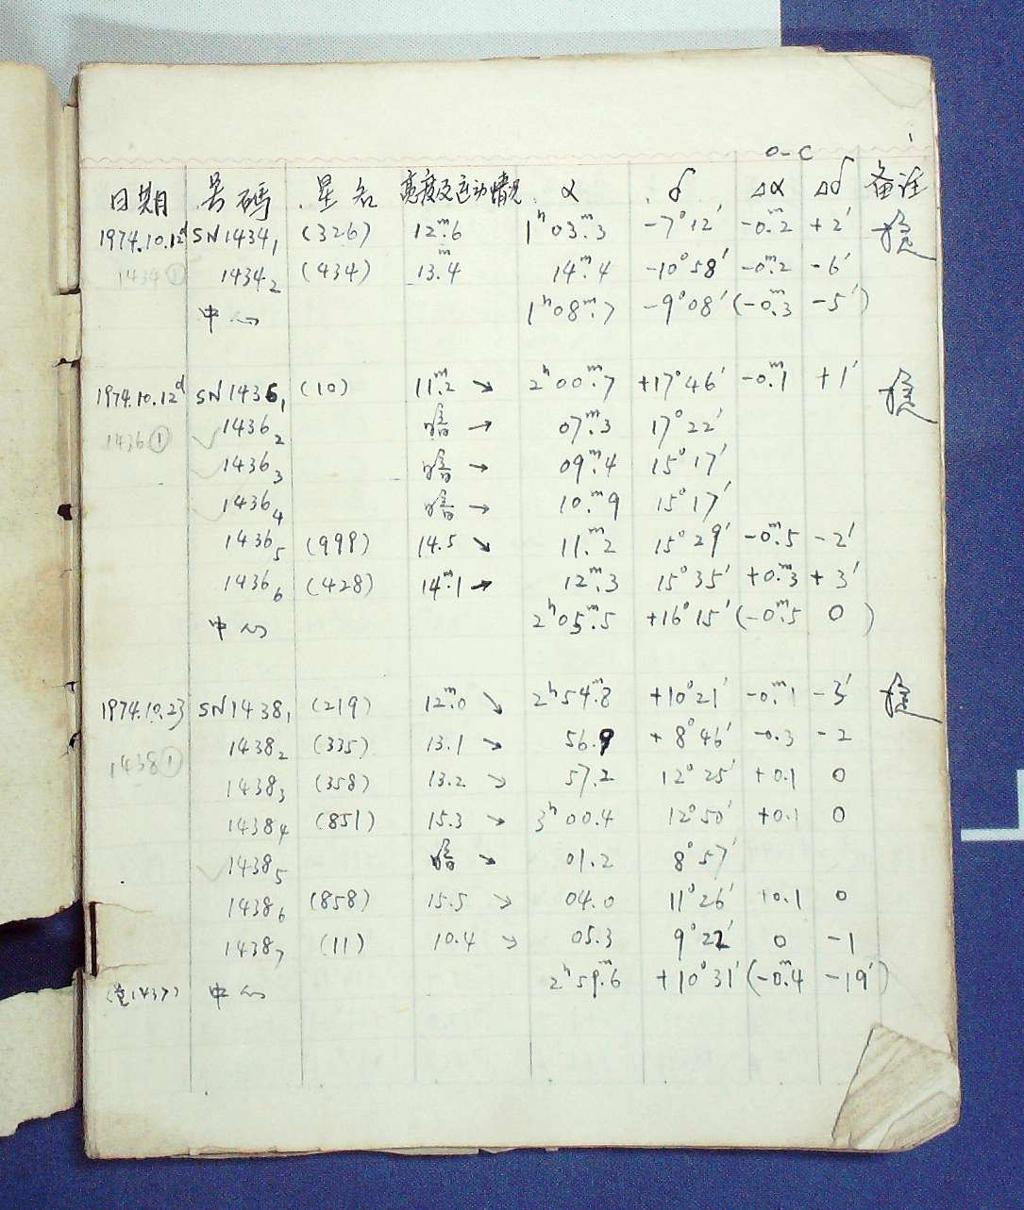 1
O-C
日期 号碼 星名 亮度及运动情况 α δ Δα Δδ 备注
1974.10.12ᵈ SN1434₁ (326) 12ᵐ.6 1ʰ03ᵐ.3 -7°12′ -0ᵐ.2 +2′ 稳
1434① 1434₂ (434) 13ᵐ.4 14ᵐ.4 -10°58′ -0ᵐ.2 -6′
中心 1ʰ08ᵐ.7 -9°08′ (-0ᵐ.3 -5′)
1974.10.12ᵈ SN1436₁ (10) 11ᵐ.2 ↘ 2ʰ00ᵐ.7 +17°46′ -0ᵐ.1 +1′ 稳
1436① 1436₂ 暗 → 07ᵐ.3 17°22′
1436₃ 暗 → 09ᵐ.4 15°17′
1436₄ 暗 → 10ᵐ.9 15°17′
1436₅ (998) 14.5 ↘ 11ᵐ.2 15°29′ -0ᵐ.5 -2′
1436₆ (428) 14ᵐ.1 → 12ᵐ.3 15°35′ +0ᵐ.3 +3′
中心 2ʰ05ᵐ.5 +16°15′ (-0ᵐ.5 0)
1974.10.23 SN1438₁ (219) 12ᵐ.0 ↘ 2ʰ54ᵐ.8 +10°21′ -0ᵐ.1 -3′ 稳
1438₂ (335) 13.1 ↘ 56.9 +8°46′ -0.3 -2
1438① 1438₃ (358) 13.2 ↘ 57.2 12°25′ +0.1 0
1438₄ (851) 15.3 ↘ 3ʰ00.4 12°50′ +0.1 0
1438₅ 暗 ↘ 01.2 8°57′
1438₆ (858) 15.5 ↘ 04.0 11°26′ +0.1 0
1438₇ (11) 10.4 ↘ 05.3 9°22′ 0 -1
1437) 中心 2ʰ59ᵐ.6 +10°31′ (-0ᵐ.4 -19′)